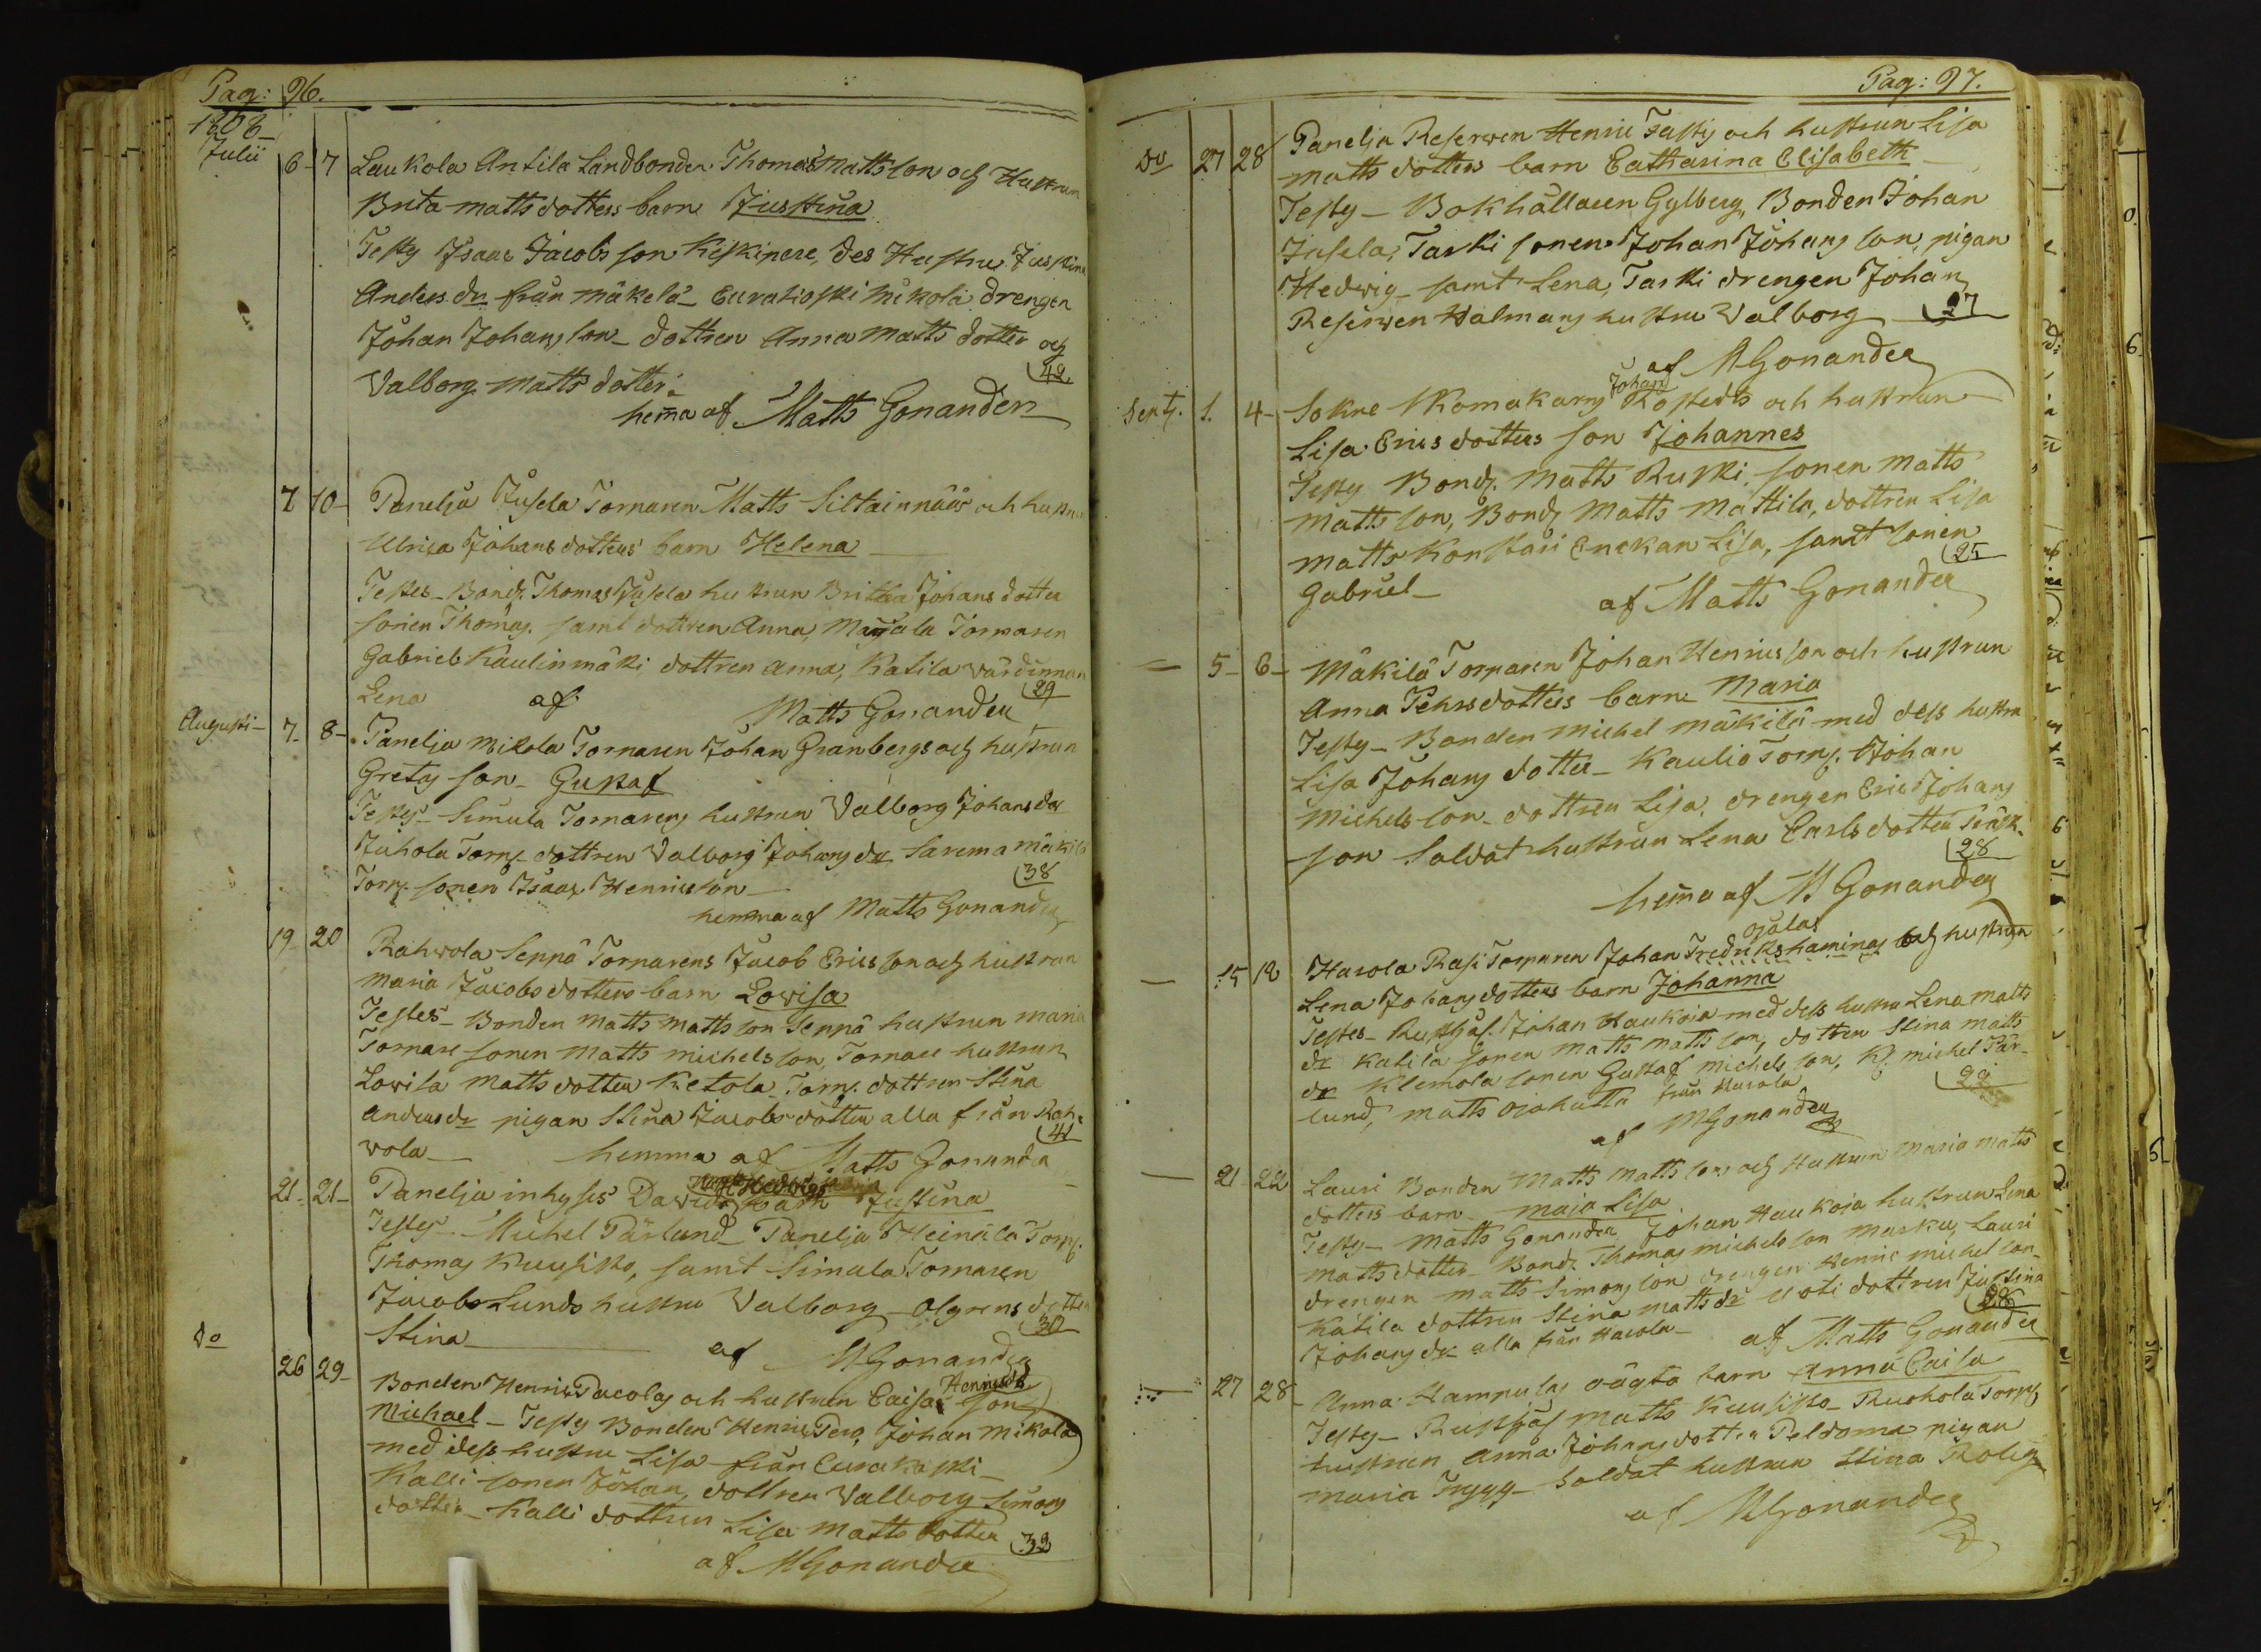 Pag: 96.
1808
Julii
6 - 7 Laukola Antila Landbonden Thomas Mattsson och Hustrun
Brita Mattsdotters barn Justina
Testes Isaac Jacobsson Kiskinere, des Hustru Justina
Anders dr från Mäkelä Euratioski Mikola drengen
Johan Johansson dottren Anna Mattsdotter och
Valborg Mattsdotter 42
hema af Matts Gonander
7 10 - Panelia Jusela Torparen Matts Siltainnäär och hustru
Ulrica Johansdotters barn Helena
Testes - Bond. Thomas Jusela hustrun Britha Johansdotter
sonen Thomas, samt dottren Anna, Torparen
Gabriel Kaulinmäki dottren Anna, Katila Värdinnan
Lena 29
af Matts Gonander
Augusti - 7 - 8 - Panelia Mikola Torparen Johan Granbergs och hustrun
Gretas son - Gustaf
Testes - Simula Torparens hustrun Valborg Johans dr
Juhola Torp. dottren Valborg Johans dr Sarema Mäkilä
Torp. sonen Isaac Henricsson 38
hemma af Matts Gonander
19 20 Rahvola Seppä Torparens Jacob Ericsson och hustrun
Maria Jacobsdotters barn Lovisa
Testes - Bonden Matts Mattsson Seppä hustrun Maria
Torpare sonen Matts Michelsson, Torpare hustrun
Lovisa Mattsdotter Ketola Torp. dottren Stina
Anders dr pigan Stina Jacobsdotter alla från Rah-
vola - 41
hemma af Matts Gonander
21 - 21 - Panelia inhyses Davids Hedvigs barn Justina
Testes - Michel Pärlund - Panelia Heinilä Torp.
Thomas Kuusisto, samt Simula Torparen
Jacob Lunds hustru Valborg - Olgrens dotter
Stina 30
af MGonander
do
26 29 - Bonden Henric Pacolas och hustrun Caisa Henricsdr son
Michael - Testes Bonden Henric Pero, Johan Mikola
med dess hustru Lisa från Eurakoski -
Kalli sonen Johan, dottren Valborg Simons
dotter - Kalli dottren Lisa Mattsdotter 32
af MGonander
Pag: 97.
do 27 28 Panelia Reserven Henric Fastig och hustrun Lisa
Mattsdotters barn Catharina Elisabeth
Testes - Bokhållaren Gylberg, Bonden Johan
Jusela, Taski sonen Johan Johansson, pigan
Hedvig - samt Lena, Taski drengen Johan,
Reserven Halmans hustru Valborg 27
af MGonander
Sept. 1. 4 - Sokne Skomakarens Johan Rostedts och hustrun
Lisa Ericsdotters son Johannes
Testes Bond. Matts Ruski, sonen Matts
Mattsson, Bond Matts Mattila, dottren Lisa
Matts Konstari Enckan Lisa, samt sonen
Gabriel - 25
af Matts Gonander
- 5 - 6 - Mäkilä Torparen Johan Henricsson och hustrun
Anna Pehrsdotters barn Maria
Testes - Bonden Michel Mäkilä med dess hustru
Lisa Johansdotter - Kaulio Torp. Johan
Michelsson - dottren Lisa, drengen Eric Johans
son Soldat hustrun Lena Carlsdotter Träsk. 28
hema af M Gonander
- 15 18 Harola Rasi Torparen Johan Fredrikshaminas ojalas och hustrun
Lena Johansdotters barn Johanna
Testes - Rusthåf. Johan Haukoja med dess hustru Lena Matts
dr Katila sonen Matts Mattsson, dottren Stina Matts
dr Klemola sonen Gustaf Michelsson, Kl. Michel Pär-
lund, Matts Ojakatta från Harola 29
af MGonander
- 21 22 Lauri Bonden Matts Mattsson och Hustrun Maria Matts
dotters barn - Maja Lisa
Testes - Matts Gonander Johan Haukoja hustrun Lena
Mattsdotter - Bond. Thomas Michelsson Marku, Lauri
drengen Matts Simonsson drengen Henric Michelsson -
Katila dottren Stina Matts dr Uoti dottren Justina
Johans dr alla från Harola - 28
af Matts Gonander
- 27 28 - Anna Hampulas oägta barn Anna Caisa
Testes - Rusthåf Matts Kuusisto - Ruohola Torps
hustrun Anna Johansdotter Peldoma pigan
Maria Trygg - Soldat hustrun Stina Rolig
af MGonander